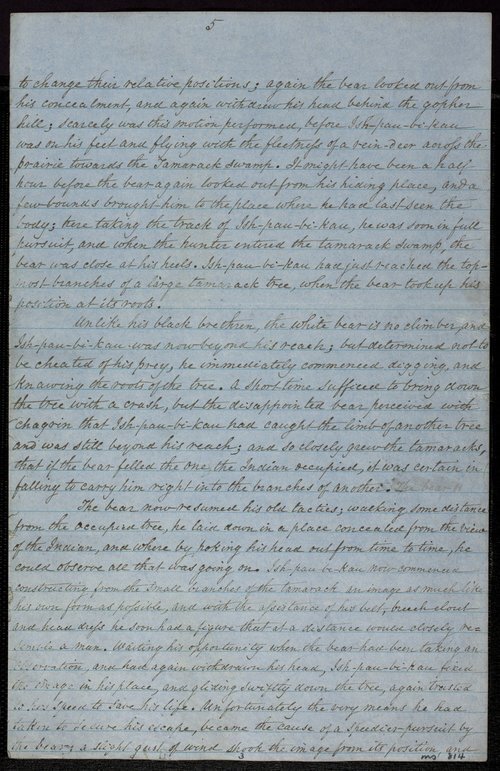 5
to change their relative positions; again the bear looked out from
his concealment, and again withdrew his head behind the gopher
hill; scarcely was this motion performed, before Ish-pau-bi-kau
was on his feet and flying with the fleetness of a rein-deer across the
prairie towards the Tamarack swamp. It might have been a half
hour before the bear again looked out from his hiding place, and a
few bounds brought him to the place where he had last seen the
body; here taking the track of Ish-pau-bi-kau, he was soon in full
pursuit, and when the hunter entered the tamarack swamp, the
bear was close at his heels. Ish-pau-bi-kau had just reached the top-
most branches of a large tamarack tree, when the bear took up his
position at its roots.
Unlike his black brethren, the white bear is no climber, and
Ish-pau-bi-kau was now beyond his reach; but determined not to
be cheated of his prey, he immediately commenced digging, and
knawing the roots of the tree. A short time sufficed to bring down
the tree with a crash, but the disappointed bear perceived with
chagrin that Ish-pau-bi-kau had caught the limb of another tree
and was still beyond his reach; and so closely grew the tamaracks,
that if the bear felled the one the Indian occupied, it was certain in
falling to carry him right into the branches of another.
The bear now resumed his old tactics; walking some distance
from the occupied tree, he laid down in a place concealed from the view
of the Indian, and where by poking his head out from time to time, he
could observe all that was going on. Ish-pau-bi-kau now commenced
constructing from the small branches of the tamarack an image as much like
his own form as possible, and with the assistance of his belt, breech clout
and head dress he soon had a figure that at a distance would closely re-
semble a man. Waiting his opportunity when the bear had been taking an
observation, and had again withdrawn his head, Ish-pau-bi-kau fixed
the image in his place, and gliding swiftly down the tree, again trusted
to his speed to save his life. Unfortunately the very means he had
taken to secure his escape, became the cause of a speedier pursuit by
the bear; a slight gust of wind shook the image from its position, and
3